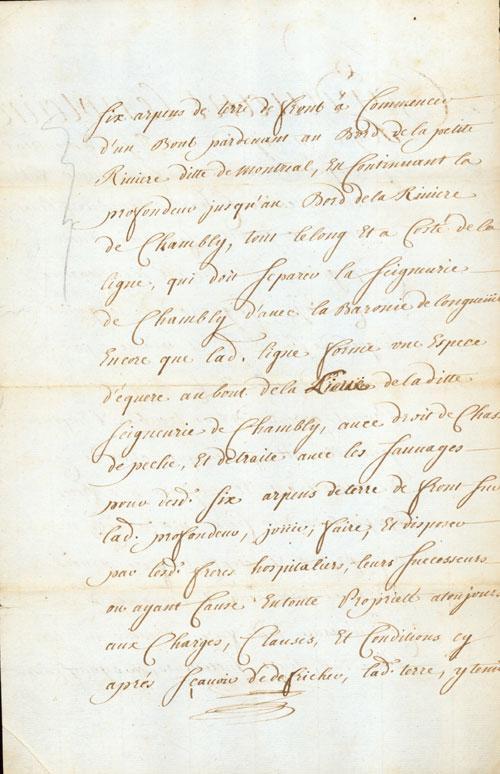 six arpens de terre de front à Commencer
d'un Bout pardevant au Bord de la petite
Riviere ditte de Montreal, En Continuant la
profondeur jusqu'au Bord de la Riviere
de Chambly, tout le long Et a Costé de la
ligne, qui doit separer la Seigneurie
de Chambly d'avec la Baronie de longueüil
Encore que lad. ligne forme vne Espece
d'équere au bout de la Lieüe de la ditte
Seigneurie de Chambly, avec droit de Chas
de peche, Et de traite avec les sauuages
pour desd. Six arpens de terre de front sur
lad. profondeur, jouir, faire, Et disposer
par lesd. freres hospitaliers, leurs successeurs
ou ayant Cause En toute Proprieté a toujours
aux Charges, Clauses, Et Conditions cy
aprés Sçauoir de defricher, lad. terre, y tenir